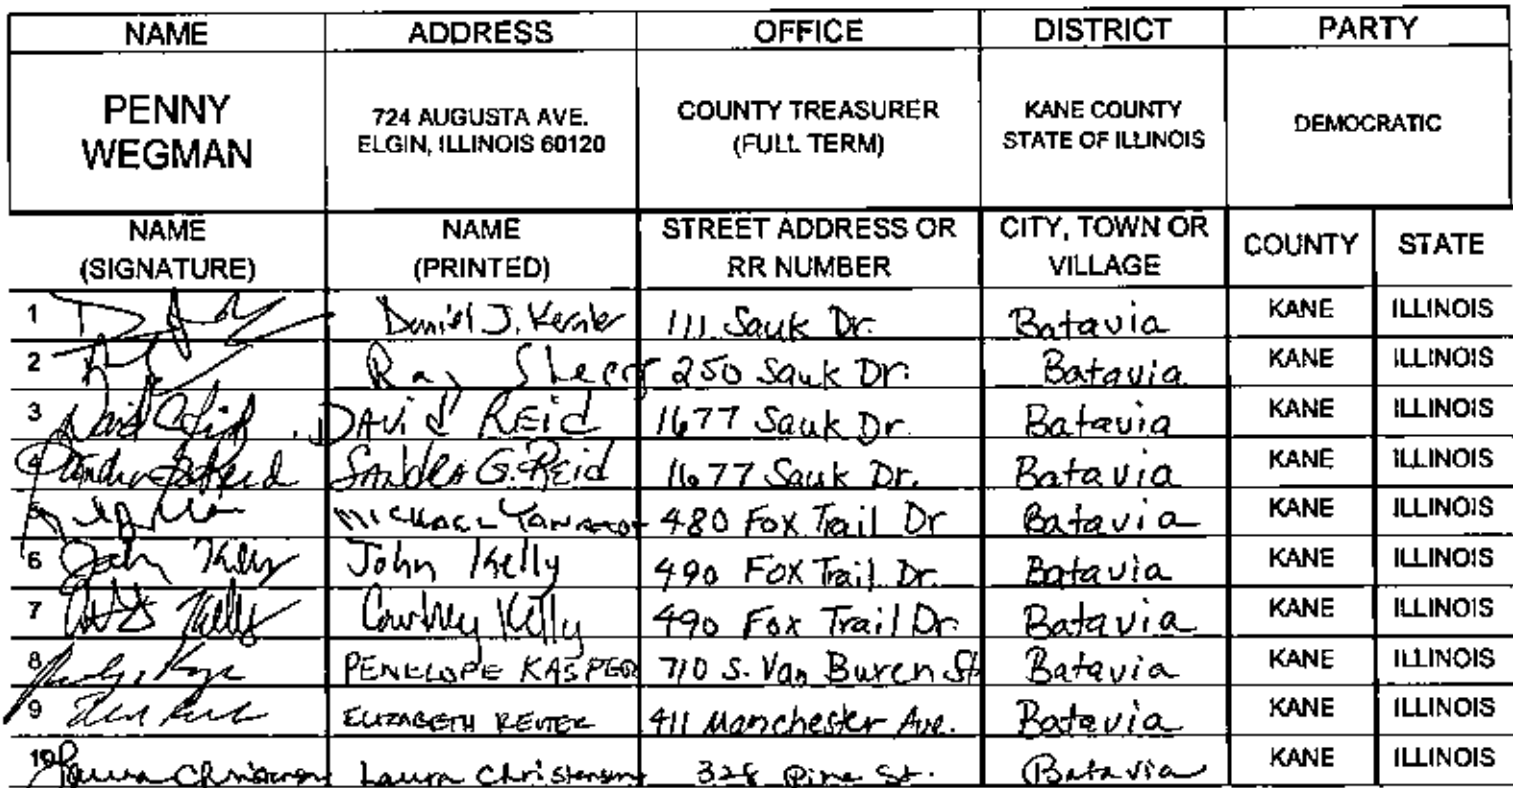 NAME ADDRESS OFFICE DISTRICT PARTY
PENNY WEGMAN 724 AUGUSTA AVE. ELGIN, ILLINOIS 60120 COUNTY TREASURER (FULL TERM) KANE COUNTY STATE OF ILLINOIS DEMOCRATIC
NAME (SIGNATURE) NAME (PRINTED) STREET ADDRESS OR RR NUMBER CITY, TOWN OR VILLAGE COUNTY STATE
1 Daniel J. 111 Sauk Dr. Batavia KANE ILLINOIS
2 Ray 250 Sauk Dr. Batavia KANE ILLINOIS
3 David Reid DAVid REid 1677 Sauk Dr. Batavia KANE ILLINOIS
4 Sandra G. Reid SANdRA G. REid 1677 Sauk Dr. Batavia KANE ILLINOIS
5 MICHAEL 480 Fox Trail Dr Batavia KANE ILLINOIS
6 John Kelly John Kelly 490 Fox Trail Dr. Batavia KANE ILLINOIS
7 Kelly Courtney Kelly 490 Fox Trail Dr. Batavia KANE ILLINOIS
8 PENELOPE KASPER 710 S. Van Buren St Batavia KANE ILLINOIS
9 ELIZABETH REUTER 411 Manchester Ave. Batavia KANE ILLINOIS
10 Laura Christensen Laura Christensen 328 Pine St. Batavia KANE ILLINOIS